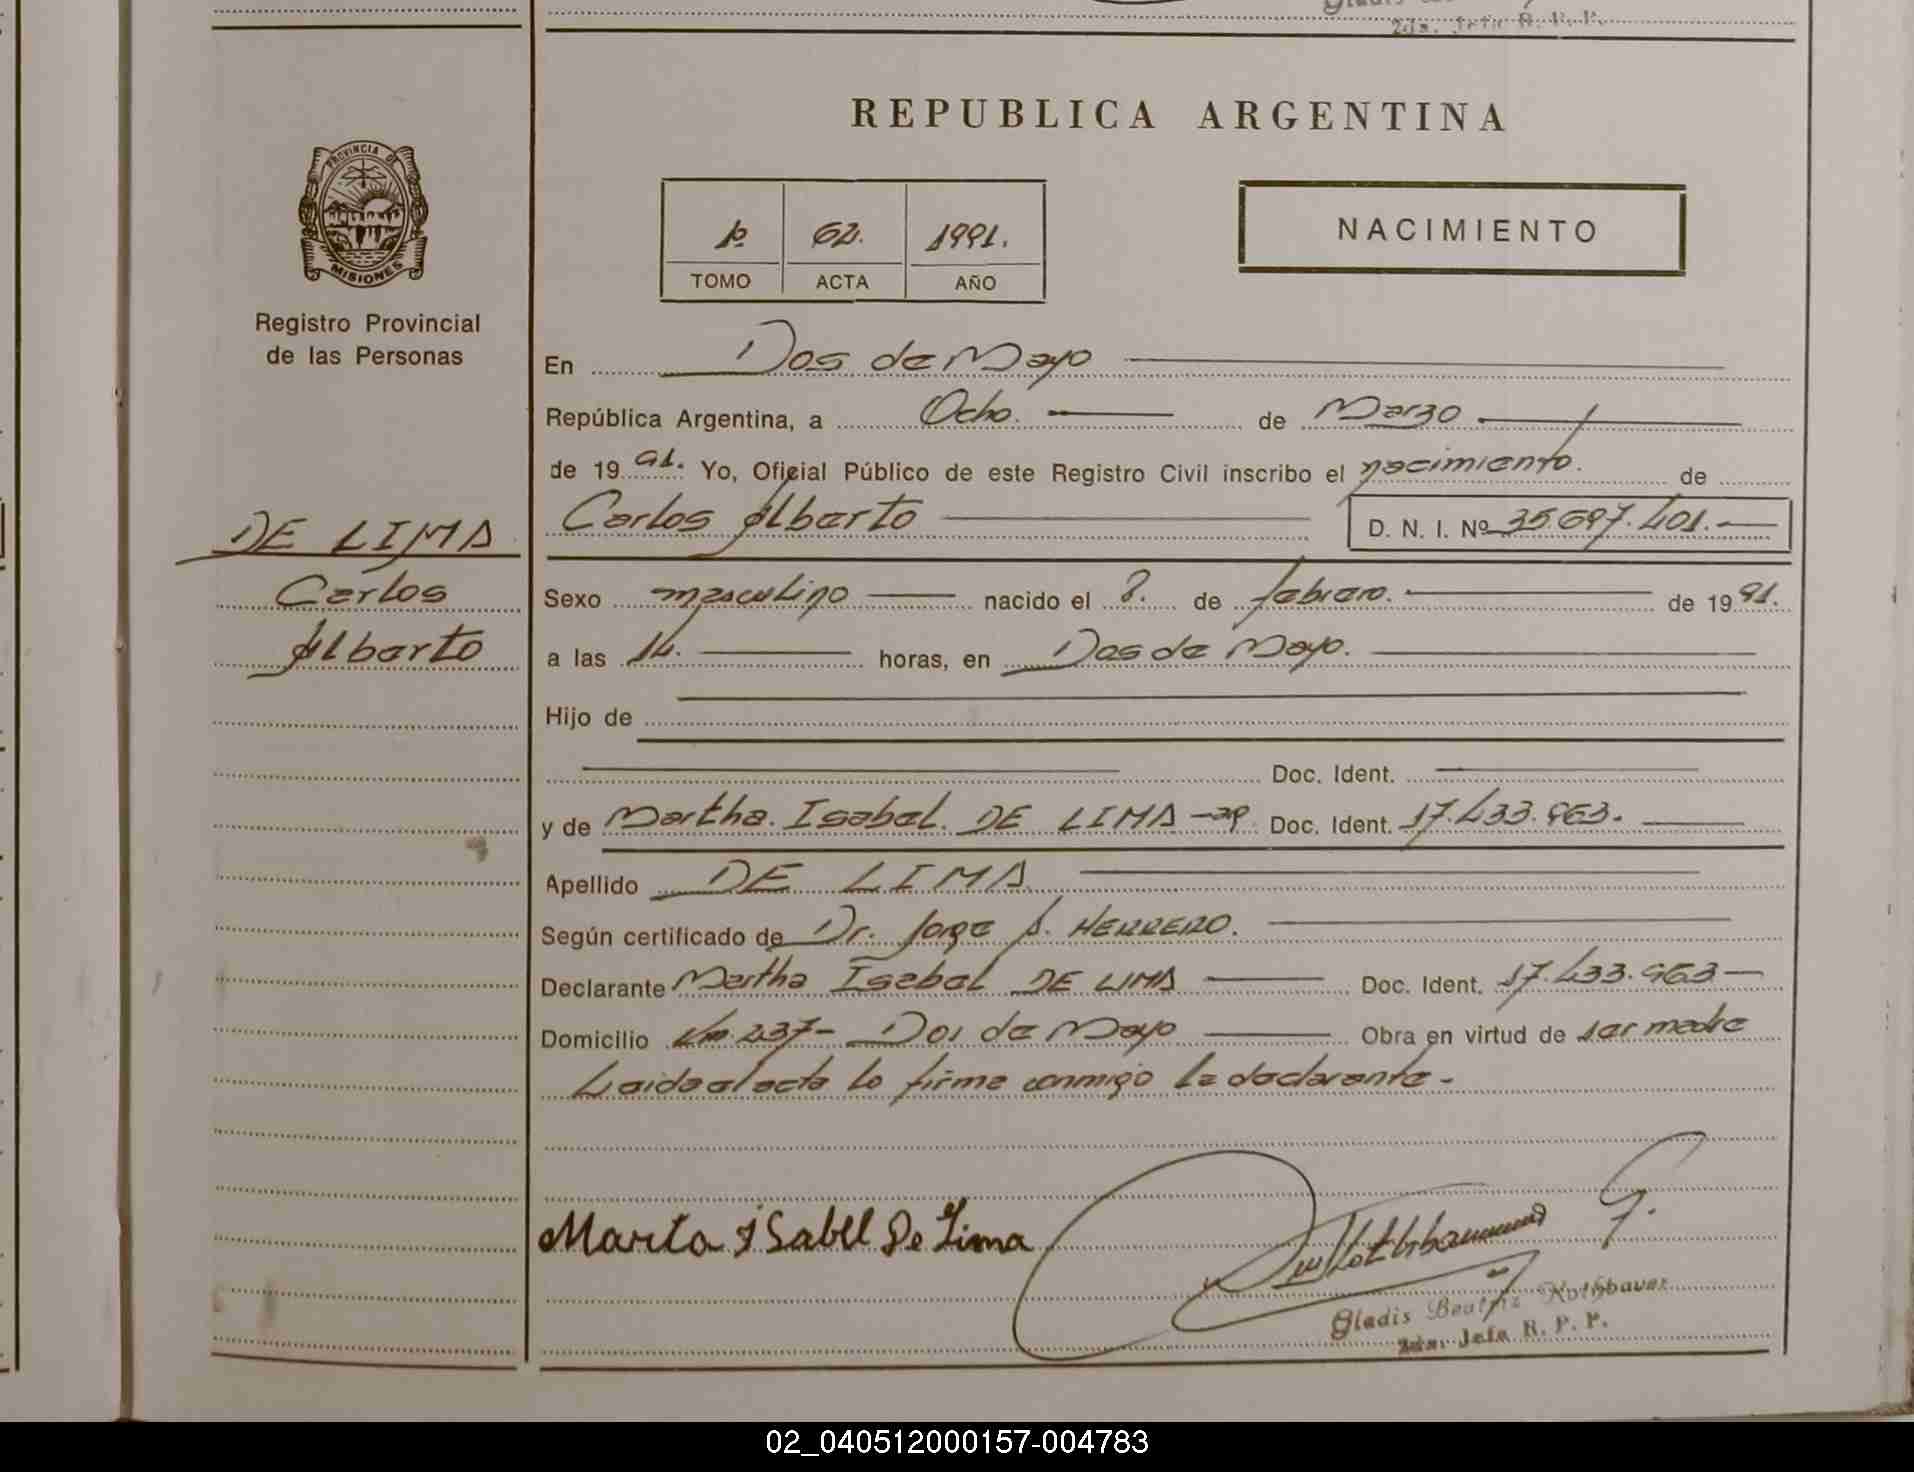 2da. Jefa R. P. P.
REPUBLICA ARGENTINA
PROVINCIA DE
MISIONES
Registro Provincial
de las Personas
1º 62. 1991.
TOMO ACTA AÑO
NACIMIENTO
En Dos de Mayo
República Argentina, a Ocho. de Marzo
de 19 91. Yo, Oficial Público de este Registro Civil inscribo el nacimiento. de
DE LIMA
Carlos
Alberto
Carlos Alberto D. N. I. Nº 35.697.401.
Sexo masculino nacido el 8. de febrero. de 19 91.
a las 14. horas, en Dos de Mayo.
Hijo de
Doc. Ident.
y de Martha. Isabel. DE LIMA Doc. Ident. 17.433.963.
Apellido DE LIMA
Según certificado de Dr. Jorge A. HERRERO.
Declarante Martha Isabel DE LIMA Doc. Ident. 17.433.963
Domicilio Km. 237- Dos de Mayo Obra en virtud de ser madre
Leida el acta lo firma conmigo la declarante.
Marta Isabel De Lima
Gladis Beatriz Rothbauer
2da. Jefa R. P. P.
02_040512000157-004783